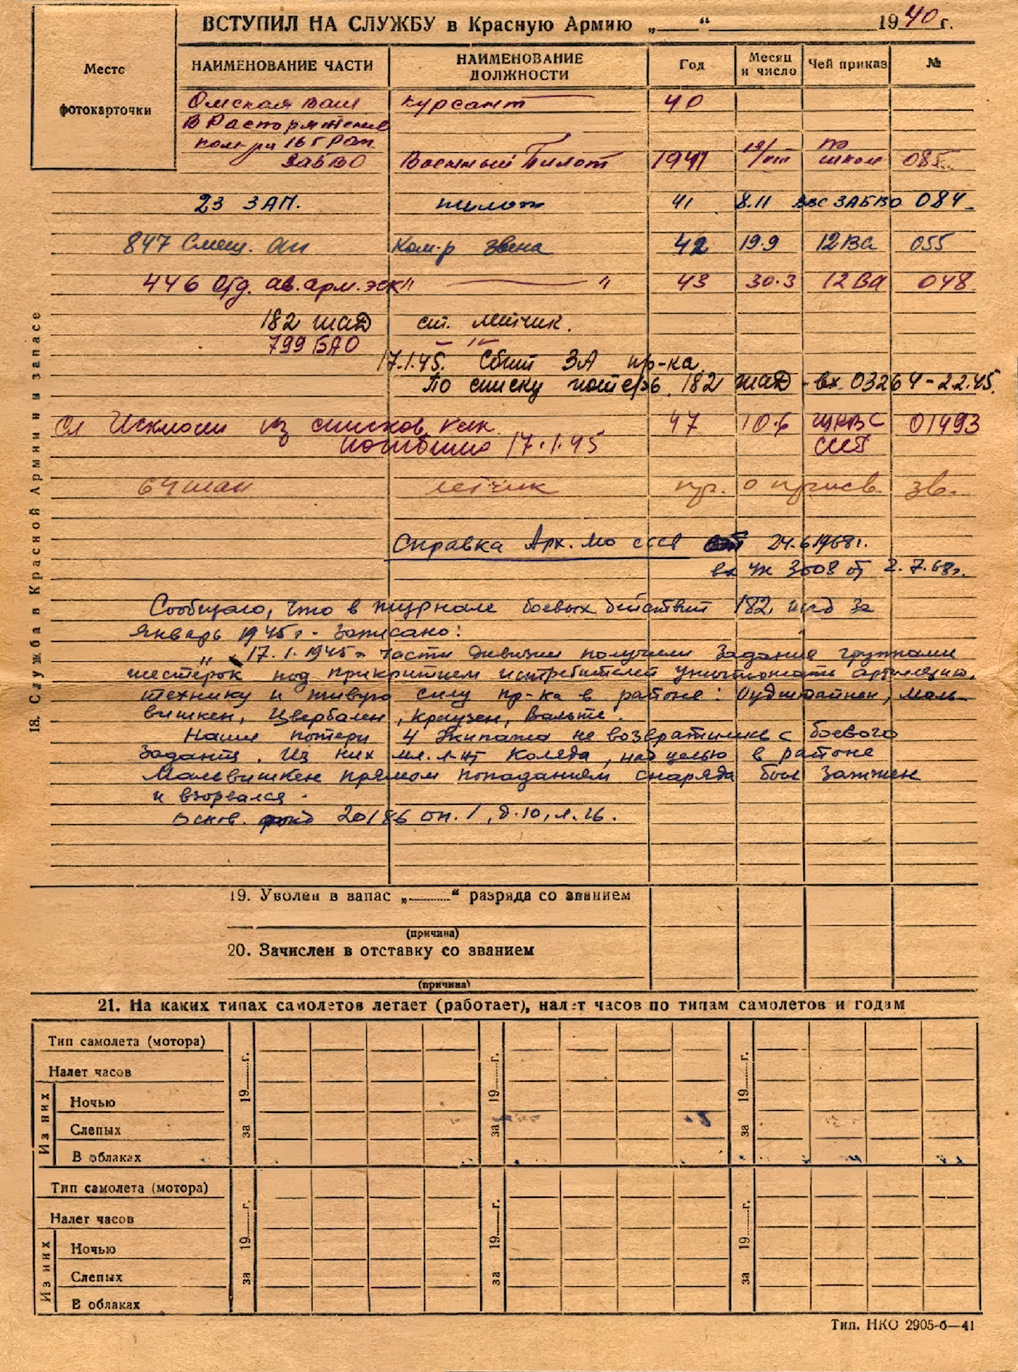 ВСТУПИЛ НА СЛУЖБУ в Красную Армию „___“ ________ 1940 г.
Место
фотокарточки
НАИМЕНОВАНИЕ ЧАСТИ
НАИМЕНОВАНИЕ ДОЛЖНОСТИ
Год
Месяц и число
Чей приказ
№
Омская ваш курсант 40
В распоряжение
ЗабВО Военный Пилот 1941 12/VIII по школ 085
23 ЗАП. пилот 41 8.11 ввс ЗАБВО 084
847 Смеш. ап Ком-р звена 42 19.9 12 Ва 055
446 Отд. ав. арм. эск " — " 43 30.3 12 ВА 048
182 шаД ст. летчик.
799 БАО — " —
17.1.45. Сбит ЗА пр-ка
По списку потерь 182 шаД - вх. 03264 - 2.2.45.
Исключен из списков как 47 10.6 01493
погибший 17.1.45
64 шап летчик пр. о присв. зв.
Справка Арх. МО СССР от 24.6.1968 г.
вх № 3608 от 2.7.68 г.
Сообщаю, что в журнале боевых действий 182 шад за
январь 1945 г - записано:
„17.1.1945 г части дивизии получили задание группами
шестерок под прикрытием истребителей уничтожать артиллерию,
технику и живую силу пр-ка в районе: Пудшпайнен, Маль-
вишкен, Цверболен, Краузен, Вальте.
Наши потери 4 экипажа не возвратились с боевого
задания. Из них мл. л-т Коляда, над целью в районе
Мальвишкен прямым попаданием снаряда был зажжен
и взорвался.
Основ. фонд 20186 оп. 1, д. 10, л. 26.
18. Служба в Красной Армии и запасе
19. Уволен в запас „___“ разряда со званием
(причина)
20. Зачислен в отставку со званием
(причина)
21. На каких типах самолетов летает (работает), налет часов по типам самолетов и годам
Тип самолета (мотора)
Налет часов
Из них
Ночью
Слепых
В облаках
за 19___г.
за 19___г.
за 19___г.
Тип самолета (мотора)
Налет часов
Из них
Ночью
Слепых
В облаках
за 19___г.
за 19___г.
за 19___г.
Тип. НКО 2905-б—41